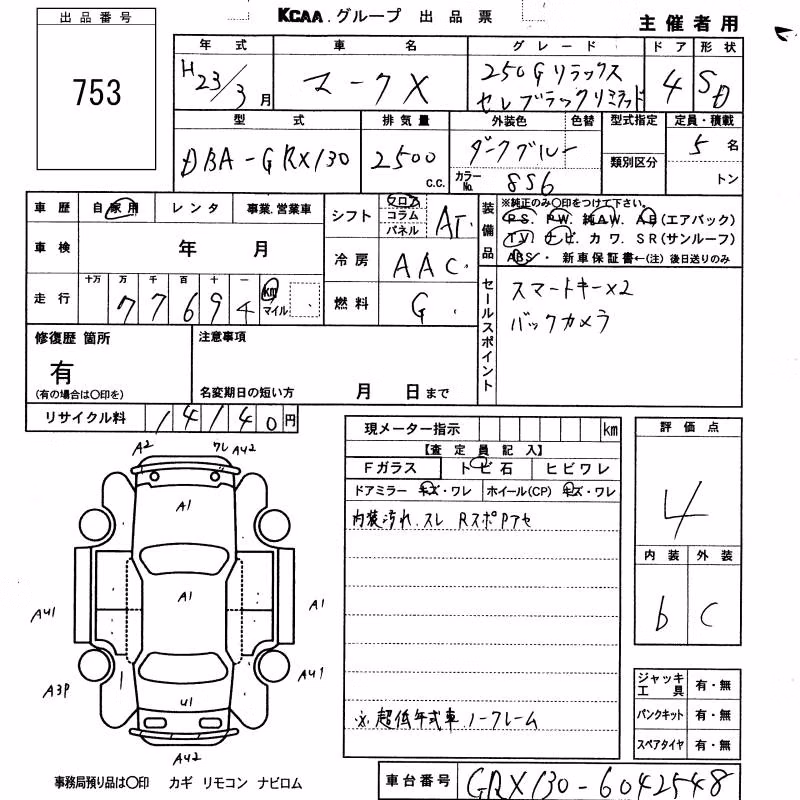 KCAA.グループ 出品票
主催者用
出品番号
753
年式 車名 グレード ドア 形状
H23/3月 マークX 250Gリラックス 4 SD
セレブラックリミテッド
型式 排気量 外装色 色替 型式指定 定員・積載
類別区分
DBA-GRX130 2500 c.c. ダークブルー 5名
カラーNo. 856 トン
車歴 自家用 レンタ 事業.営業車
シフト フロア コラム パネル AT.
車検 年 月
冷房 AAC.
走行 十万 万 千 百 十 一
77694 km マイル
燃料 G.
装備品
※純正のみ〇印をつけて下さい。
PS. PW. 純AW. AB(エアバック)
TV. ナビ. カワ. SR(サンルーフ)
ABS・ 新車保証書←(注) 後日送りのみ
セールスポイント
スマートキー×2
バックカメラ
修復歴 箇所
有
(有の場合は〇印を)
注意事項
名変期日の短い方 月 日まで
リサイクル料 14140円
現メーター指示 km
【査定員記入】
Fガラス トビ石 ヒビワレ
ドアミラー キズ・ワレ ホイール(CP) キズ・ワレ
内装汚れ.スレ RスポPアセ
※.超低年式車.ノークレーム
評価点
4
内装 外装
b C
ジャッキ工具 有・無
パンクキット 有・無
スペアタイヤ 有・無
A2 ワレ AU2
A1
AU1 A1 A1
A3P AU1
U1
AU2
事務局預り品は〇印 カギ リモコン ナビロム
車台番号 GRX130-6042548